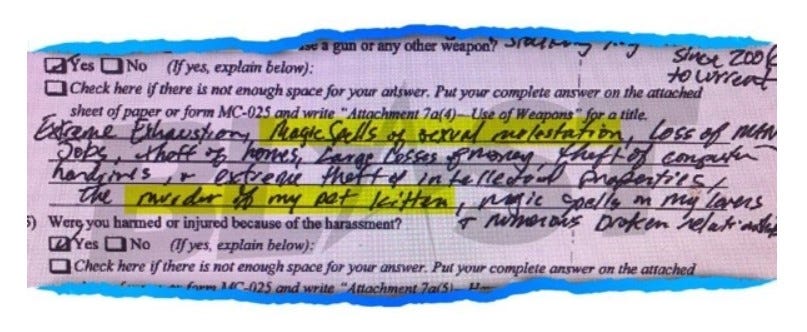 use a gun or any other weapon?
since 200
to current
Yes No (If yes, explain below):
Check here if there is not enough space for your answer. Put your complete answer on the attached
sheet of paper or form MC-025 and write "Attachment 7a(4)—Use of Weapons" for a title.
Extreme Exhaustion, Magic Spells of sexual molestation, Loss of
Jobs, theft of homes, Large losses of money, theft of computer
hardrives, & extreme theft of intellectual properties,
the murder of my pet kitten, magic spells on my lovers
& numerous broken relationship
5) Were you harmed or injured because of the harassment?
Yes No (If yes, explain below):
Check here if there is not enough space for your answer. Put your complete answer on the attached
or form MC-025 and write "Attachment 7a(5)—
BLAST